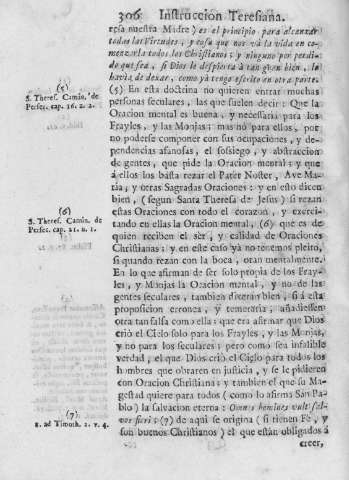 306 Instruccion Teresiana.
resa nuestra Madre) es el principio para alcanzar
todas las Virtudes, y cosa que nos vá la vida en co-
menzarla todos los Christianos: y ninguno por perdi-
do que sea, si Dios le despierta à tan gran bien, lo
havia de dexar, como yà tengo escrito en otra parte.
(5) En esta doctrina no quieren entrar muchas
personas seculares, las que suelen decir: Que la
Oracion mental es buena, y necessaria para los
Frayles, y las Monjas; mas nò para ellos, por
no poderse componer con sus ocupaciones, y de-
pendencias afanosas, el sossiego, y abstraccion
de gentes, que pide la Oracion mental: y que
à ellos los basta rezar el Pater Noster, Ave
Maria, y otras Sagradas Oraciones: y en esto dicen
bien, (segun Santa Theresa de Jesus) si rezan
estas Oraciones con todo el corazon, y exerci-
tando en ellas la Oracion mental, (6) que es de
quien reciben el ser, y calidad de Oraciones
Christianas: y en este caso yà no tenemos pleito,
si quando rezan con la boca, oran mentalmente.
En lo que afirman de ser solo propia de los Fray-
les, y Monjas la Oracion mental, y no de las
gentes seculares, tambien diceràn bien, si à esta
proposicion erronea, y temeraria, añadiessen
otra tan falsa como ella: que era afirmar que Dios
criò el Cielo solo para los Frayles, y las Monjas,
y no para los seculares: pero como sea infalible
verdad, el que Dios criò el Cielo para todos los
hombres que obraren en justicia, y se le pidieren
con Oracion Christiana: y tambien el que su Ma-
gestad quiere para todos (como lo afirma San Pa-
blo) la salvacion eterna: Omnes homines vult sal-
vos fieri: (7) de aqui se origina (si tienen Fè, y
son buenos Christianos) el que estàn obligados à
creer,
(5)
S. Theres. Camin. de
Perfec. cap. 16. n. 2.
(6)
S. Theres. Camin. de
Perfec. cap. 21. n. 1.
(7)
1. ad Timoth. 2. v. 4.